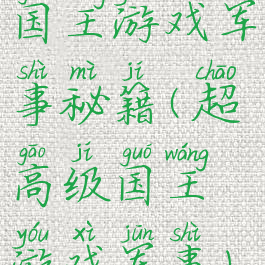 国王游戏军
shì mì jí chāo
事秘籍(超
gāo jí guó wáng
高级国王
yóu xì jūn shì
游戏军事)